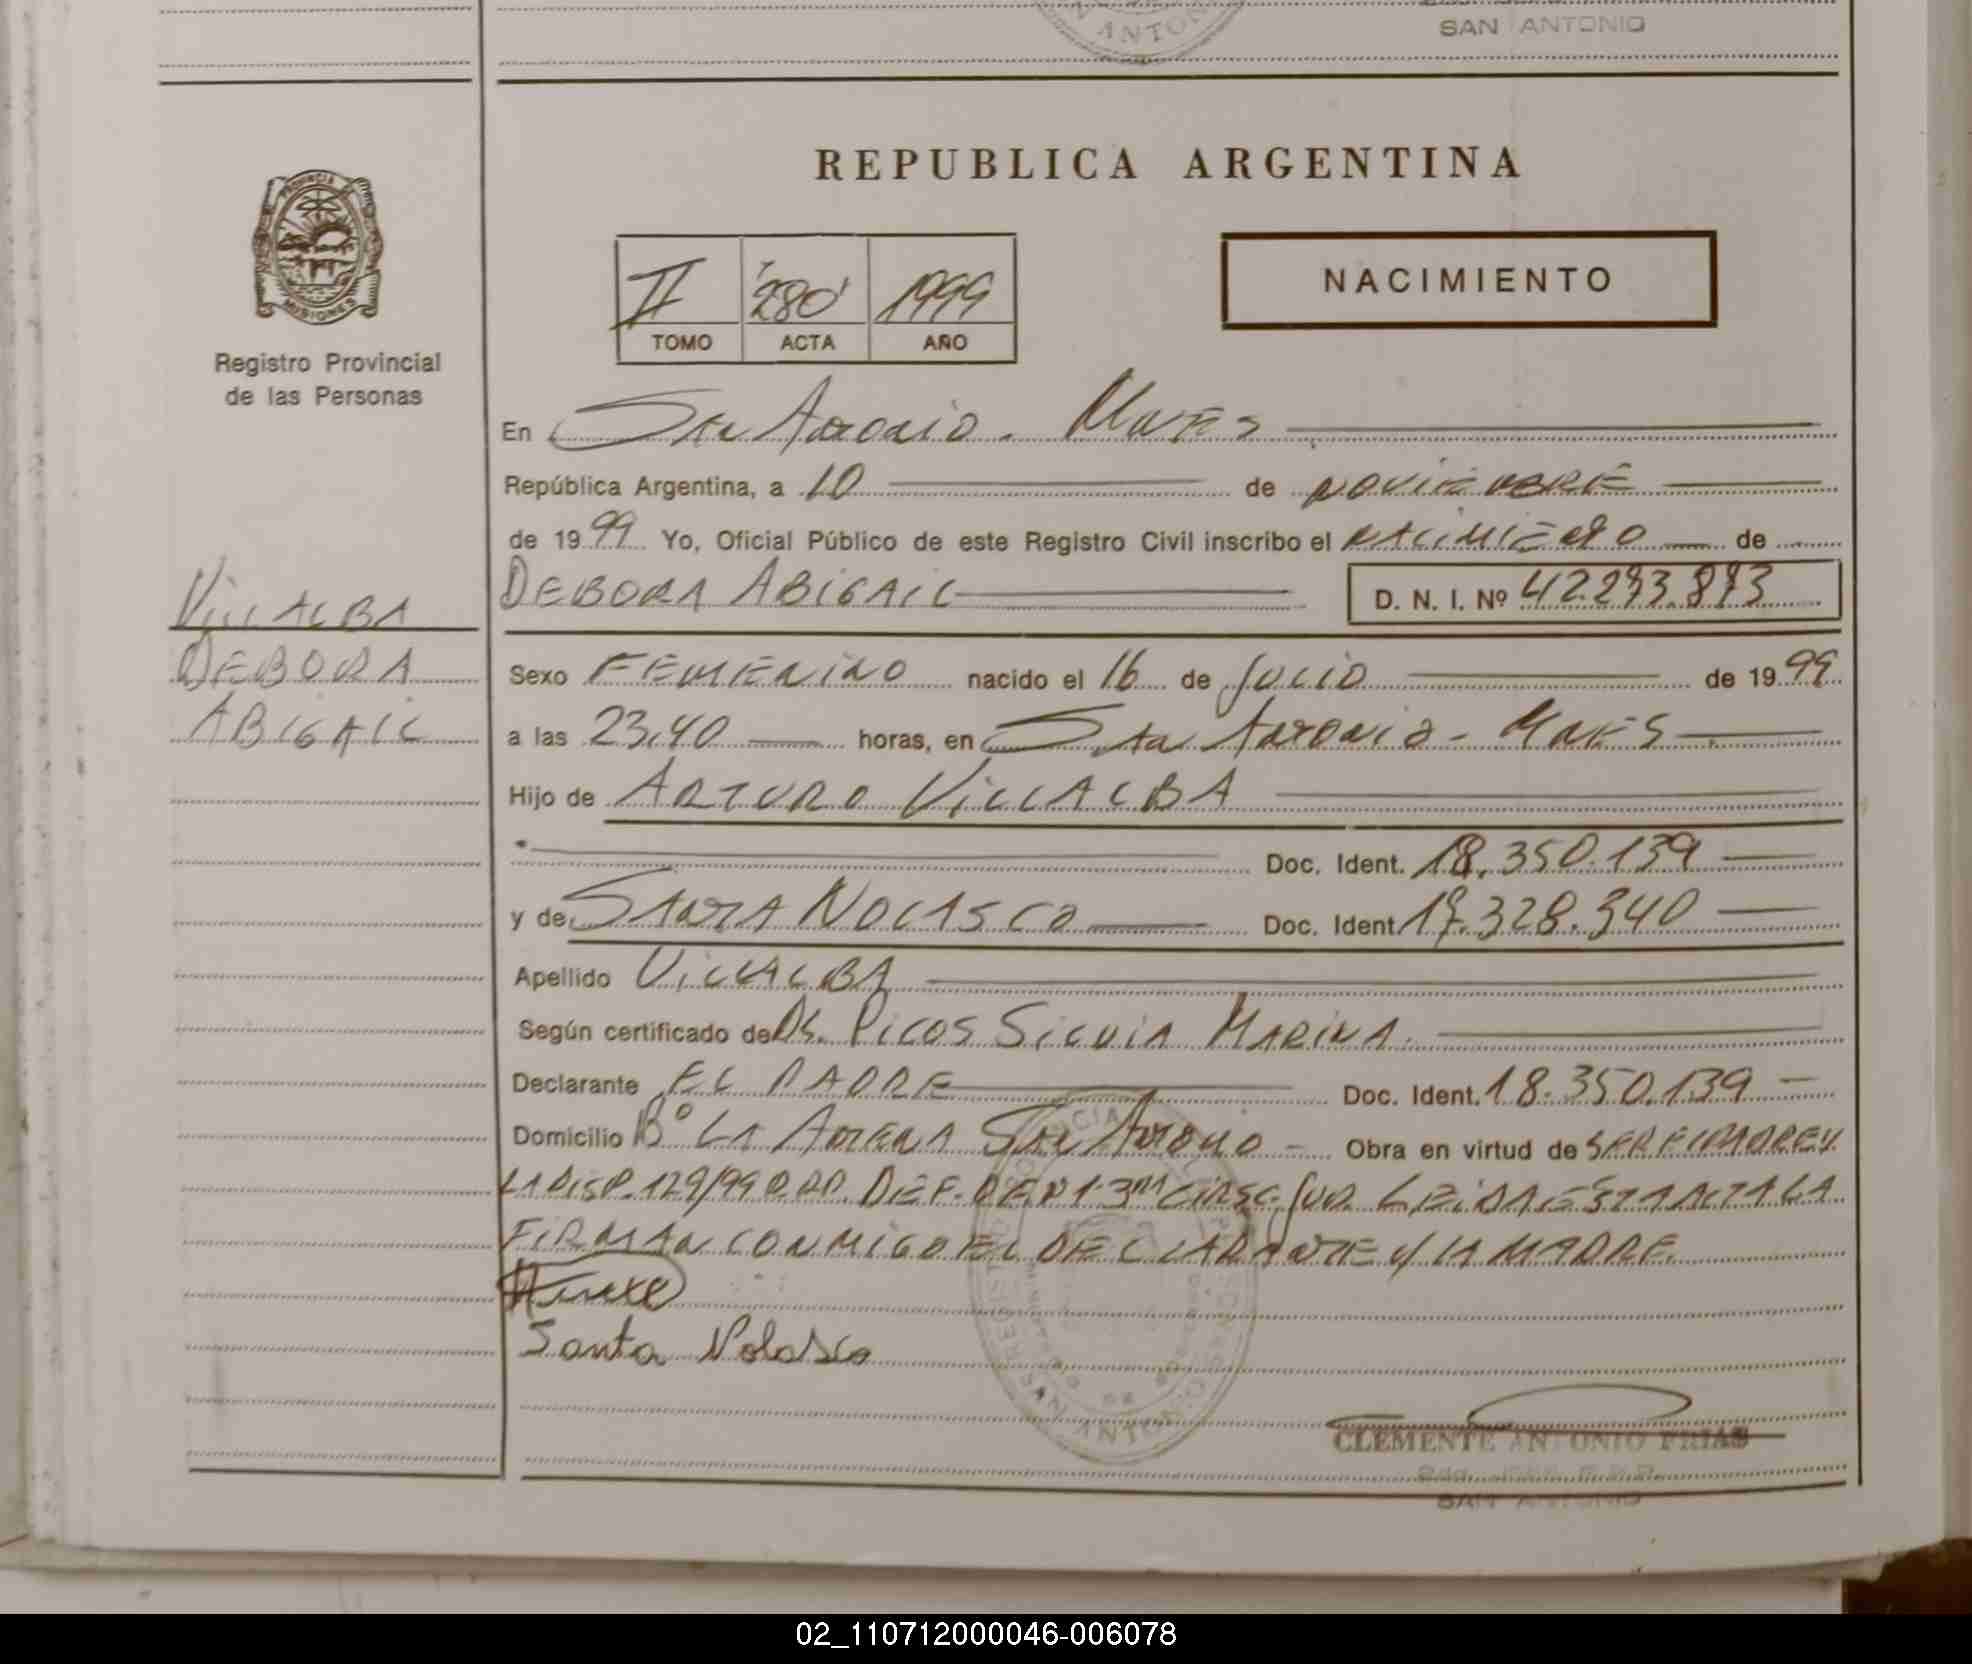 SAN ANTONIO
ANTON
REPUBLICA ARGENTINA
PROVINCIA DE
MISIONES
II 280 1999
TOMO ACTA AÑO
NACIMIENTO
Registro Provincial
de las Personas
En San Antonio. Mnes
República Argentina, a 10 de noviembre
de 1999 Yo, Oficial Público de este Registro Civil inscribo el nacimiento de
DEBORA ABIGAIL D. N. I. Nº 42.293.893
VILLALBA
DEBORA
ABIGAIL
Sexo FEMENINO nacido el 16 de Julio de 1999
a las 23,40 horas, en San Antonio - Mnes
Hijo de ARTURO VILLALBA
Doc. Ident. 18.350.139
y de SANTA NOLASCO Doc. Ident. 17.328.340
Apellido VILLALBA
Según certificado de Ds. PICOS SILVIA MARINA.
Declarante EL PADRE Doc. Ident. 18.350.139
Domicilio Bº LA San Antonio - Obra en virtud de SER EL PADRE Y
LA DISP. 129/99 DEF. DE 3ra CIRSC. JUD. LEIDA ESTA ACTA LA
FIRMAN CONMIGO EL DECLARANTE Y LA MADRE.
Santa Nolasco
CLEMENTE ANTONIO FRIAS
SAN ANTONIO
02_110712000046-006078